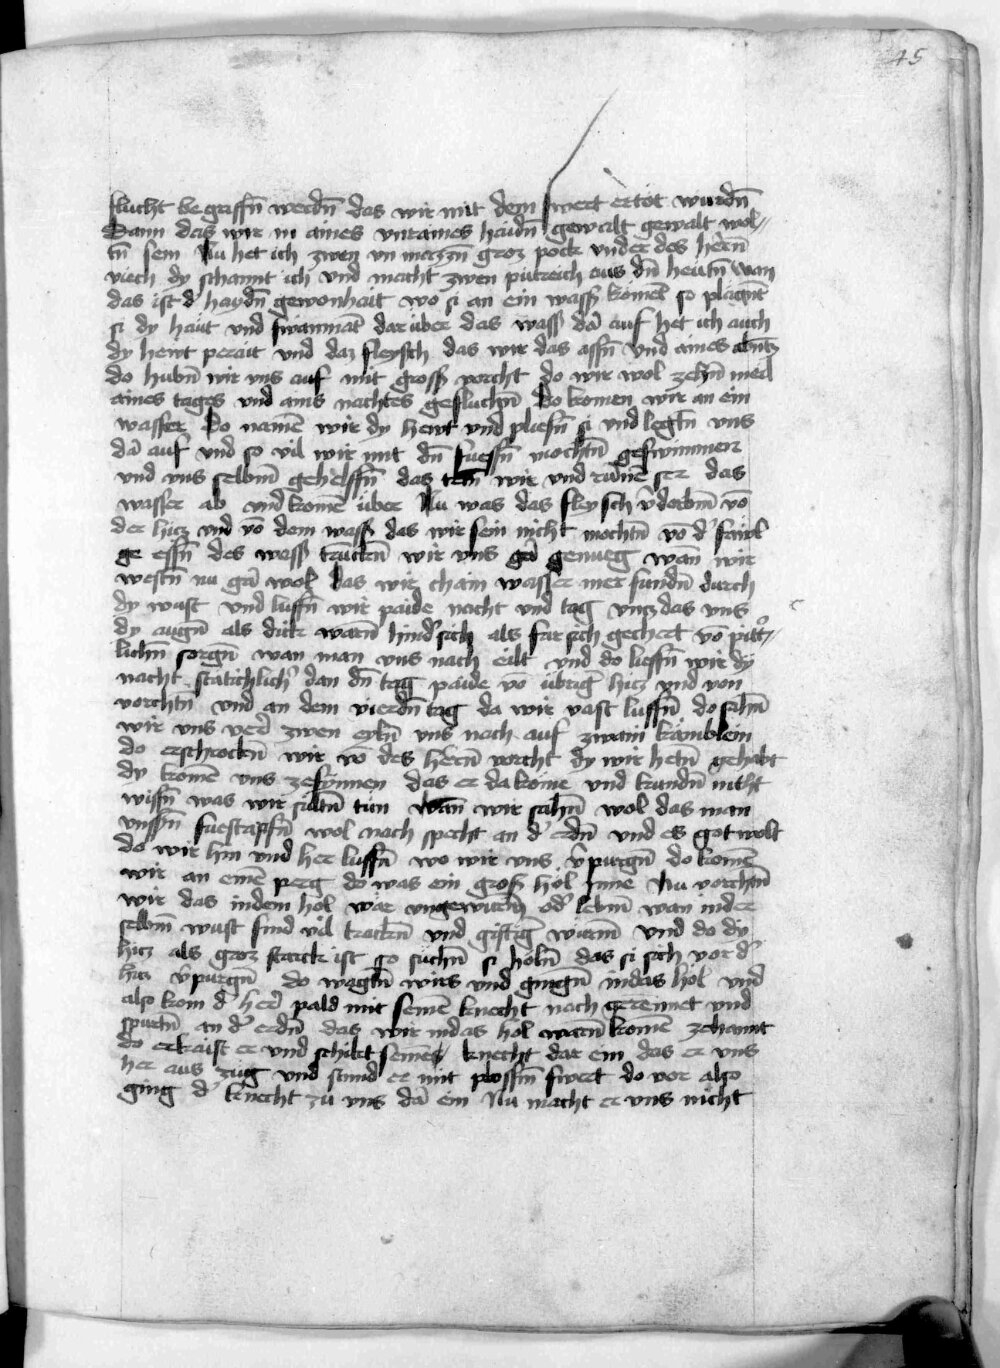 45
flucht begriffn̄ werdn̄ das wir mit dem swert ertöt wurdn̄
Dann das wir in aines vntaines haidn̄ gewalt gewalt wol-
tn̄ sein Nu het ich zwen vn groz pock vnder des herrn̄
viech dy schannt ich vnd macht zwen putreich aus dn̄ heutn̄ wan
das ist d' haydn̄ gewonhait wo si an ein wass' komēt so plāgnt
si dy haüt vnd swimmāt dar über das wass' dā auf het ich auch
dy hewt perait vnd daz fleysch das wir das assn̄ vnd aines abntz
do hubn̄ wir vns auf mit gross' vorcht do wir wol zehn̄ meil
aines tages vnd ains nachtes gefluchn̄ Do komen wir an ein
wasser Do namē wir dy hewt vnd pliesn̄ si vnd legtn̄ vns
dā auf vnd so vil wir mit dn̄ fuessn̄ mochtn̄ geswimmen
vnd vns selbm̄ gehelffn̄ das tetn̄ wir vnd rūnē ser das
wasser ab vnd komē über Nu was das fleysch v̄dorbm̄ vō
der hicz vnd vō dem wass' das wir sein nicht mochtn̄ vō d' fäwl
ge essn̄ des wass' trūckn̄ wir vns gā genueg wān wir
westn̄ nu gā wol das wir chain wasser mer fundn̄ durch
dy wüst vnd luffn̄ wir paide nacht vnd tag vncz das vns
dy augn̄ als dick warn̄ hind'sich als fürsich gechert vō pitt'-
lichn̄ sorgn̄ wan man vns nach eilt vnd do lieffn̄ wir dy
nacht statichlich' dan dn̄ tag paide vō übrig' hicz vnd von
vorchtn̄ vnd an dem vierdn̄ tag da wir vast luffn̄ do sahn̄
wir vns verr zwen eyln̄ vns nach auf zwain kämblein
do erschrockn̄ wir vō des herrn̄ vorcht dy wir hetn̄ gehabt
dy komē vns zesynnen das er da kome vnd kundn̄ nicht
wissn̄ was wir soltn̄ tün wān wir sahn̄ wol das man
vnsyn̄ fuestapfn̄ wol nach specht an d' erdn̄ vnd es got wolt
do wir hin vnd her luffn̄ wo wir vns v̄purgn̄ do komē
wir an einē perg do was ein gross' höl inne Nu vorchtn̄
wir das indem höl wär vngewürm̄ od' lebm̄ wan in der
selbm̄ wüst sind vil trackn̄ vnd giftig' würm̄ vnd do dy
hicz als groz starck ist so suchn̄ si holn̄ das si sich vor d'
hicz v̄purgn̄ do wagtn̄ wirs vnd gingn̄ indas höl vnd
also kom d' her' pald mit seinē knecht nach gerennet vnd
spurtn̄ an d' erdn̄ das wir indas höl warn̄ komē zehannt
do erkaist er vnd schikt seinēs knecht dar ein das er vns
her aus zug vnd stund er mit plossm̄ swert do vor also
ging d' knecht zü vns dā ein Nu macht er vns nicht